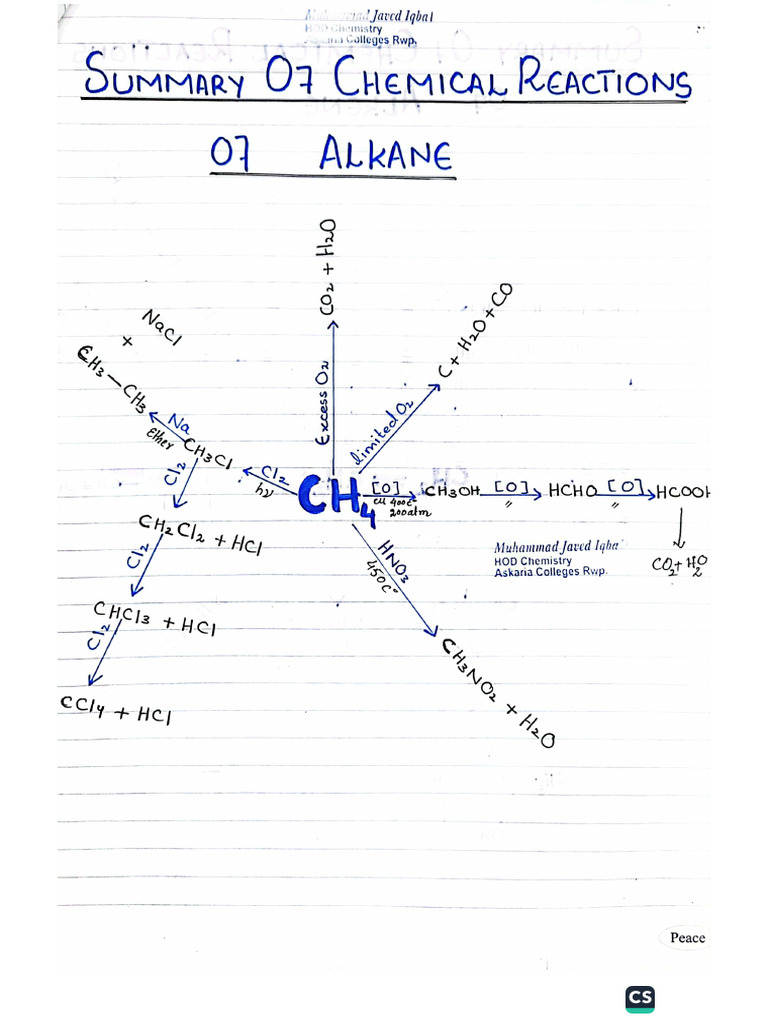 Muhammad Javed Iqbal
HOD Chemistry
Askaria Colleges Rwp.
SUMMARY OF CHEMICAL REACTIONS
OF ALKANE
CO2 + H2O
Excess O2
C + H2O + CO
limited O2
NaCl
+
CH3 — CH3
Na
Ether
CH3Cl
Cl2
hν
CH4
[O]
Cu 400C°
200atm
CH3OH
[O]
"
HCHO
[O]
"
HCOOH
CO2 + H2O
Cl2
CH2Cl2 + HCl
Cl2
CHCl3 + HCl
Cl2
CCl4 + HCl
HNO3
450C°
CH3NO2 + H2O
Muhammad Javed Iqba
HOD Chemistry
Askaria Colleges Rwp.
Peace
CS